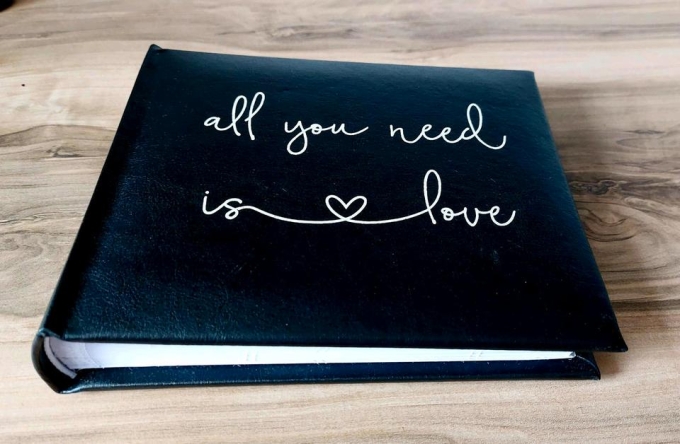 all you need
is love